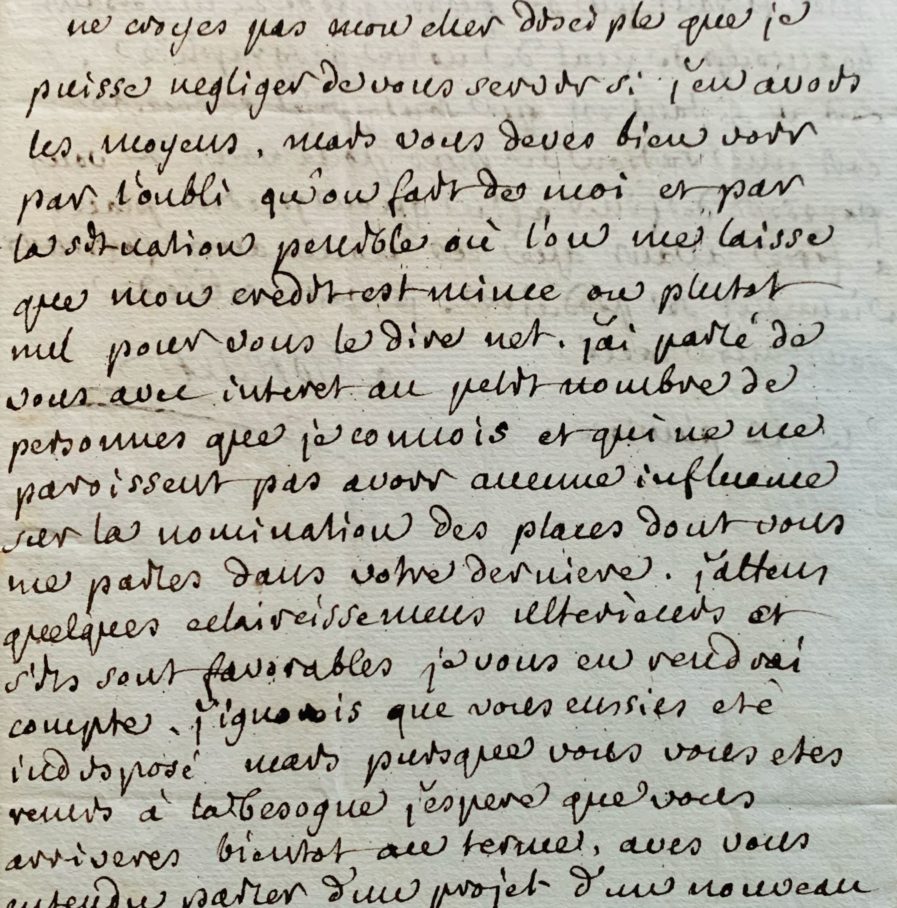 ne croyes pas mon cher disciple que je
puisse negliger de vous servir si j'en avois
les moyens, mais vous deves bien voir
par l'oubli qu'on fait de moi et par
la situation penible où l'on me laisse
que mon credit est mince ou plutot
nul pour vous le dire net. j'ai parlé de
vous avec interet au petit nombre de
personnes que je connois et qui ne me
paroissent pas avoir aucune influence
sur la nomination des places dont vous
me parles dans votre derniere. j'attens
quelques eclaircissemens ulterieurs et
s'ils sont favorables je vous en rendrai
compte. j'ignorois que vous eussies eté
indisposé mais puisque vous vous etes
remis à la besogne j'espere que vous
arriveres bientot au terme, aves vous
entendu parler d'un projet d'un nouveau